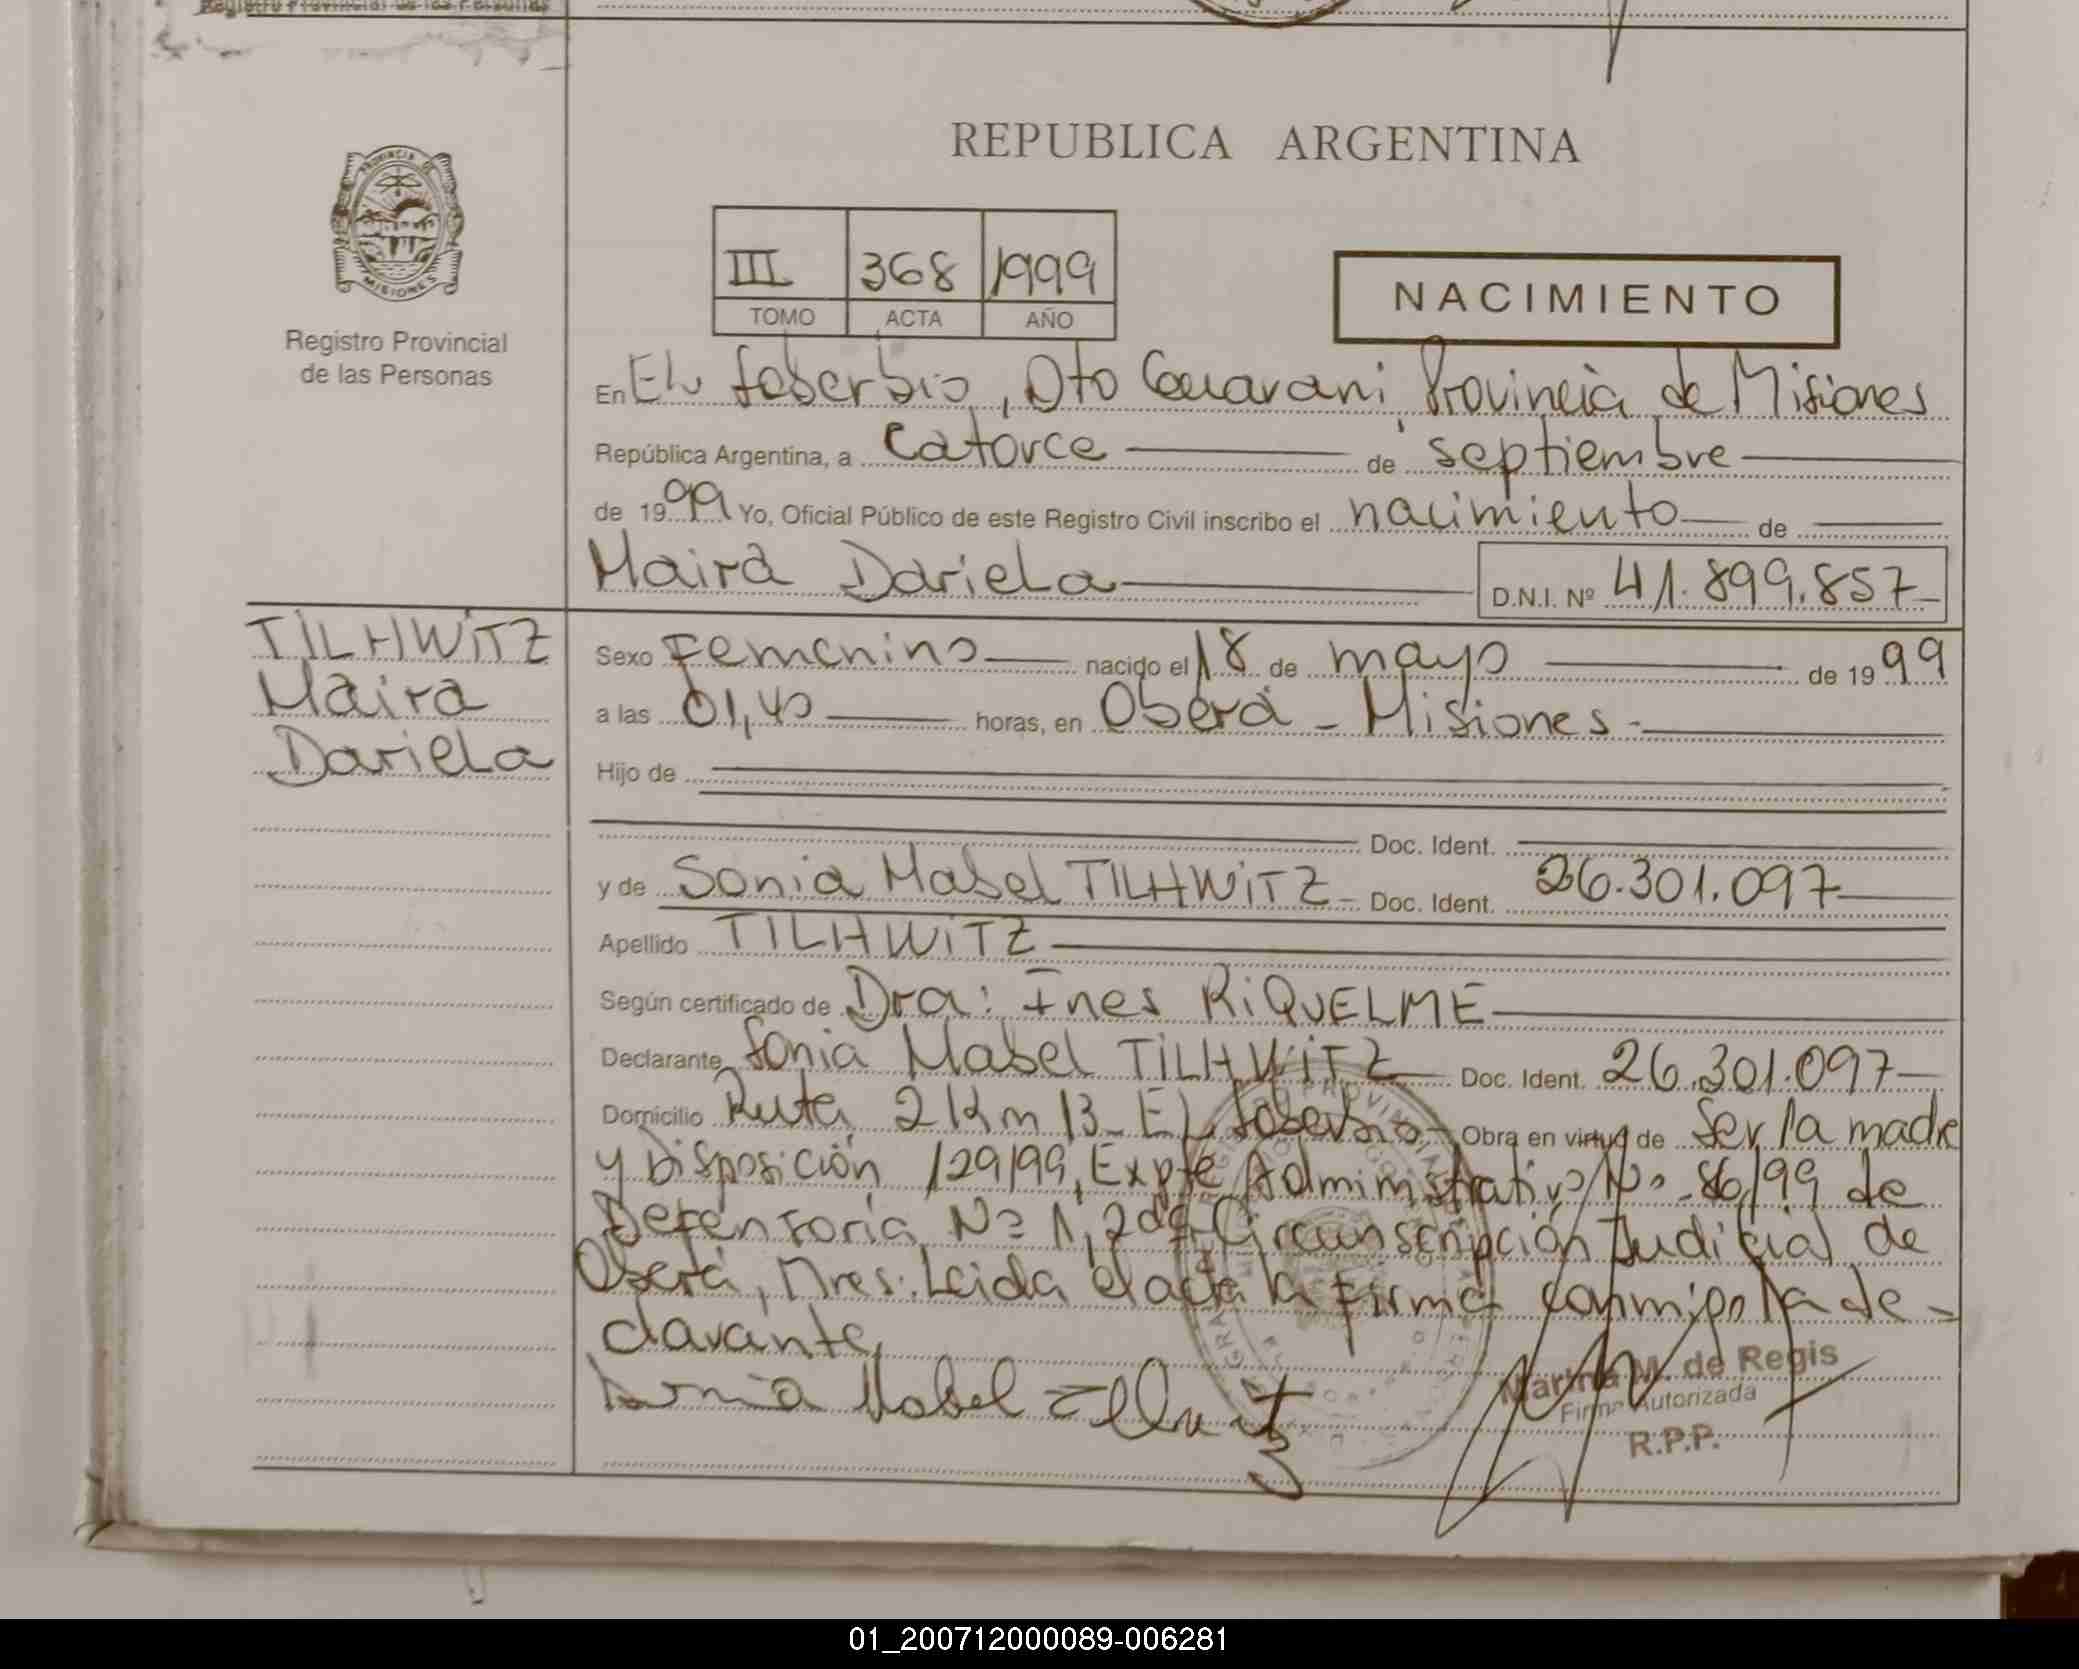 Registro Provincial de las Personas
REPUBLICA ARGENTINA
PROVINCIA DE
MISIONES
Registro Provincial
de las Personas
III 368 1999
TOMO ACTA AÑO
NACIMIENTO
En EL Soberbio, Dto Guarani, Provincia de Misiones
República Argentina, a catorce de septiembre
de 1999 Yo, Oficial Público de este Registro Civil inscribo el nacimiento de
Maira Dariela D.N.I. Nº 41.899.857
TILHWITZ
Maira
Dariela
Sexo Femenino nacido el 18 de mayo de 1999
a las 01,40 horas, en Oberá - Misiones.
Hijo de
Doc. Ident.
y de Sonia Mabel TILHWITZ Doc. Ident. 26.301.097
Apellido TILHWITZ
Según certificado de Dra: Ines RIQUELME
Declarante Sonia Mabel TILHWITZ Doc. Ident. 26.301.097
Domicilio Ruta 2 Km 13 - EL Soberbio Obra en virtud de Ser la madre
y Disposición 129/99, Expte Administrativo Nº 86/99 de
Defensoria Nº 1, 2da Circunscripción Judicial de
Oberá, Mnes. Leida el acta la firma conmigo la de-
clarante
Sonia Mabel
Marina M. de Regis
Firma Autorizada
R.P.P.
01_200712000089-006281